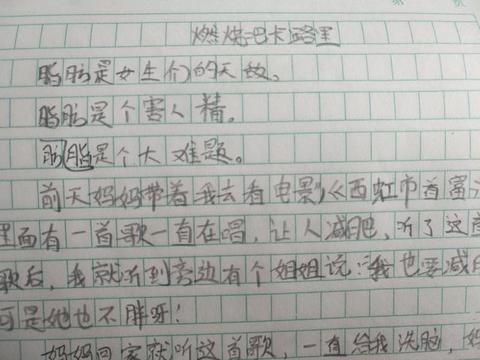 燃烧吧卡路里
脂肪是女生们的天敌。
脂肪是个害人精。
肪脂是个大难题。
前天妈妈带着我去看电影《西虹市首富
里面有一首歌一直在唱，让人减肥，听了这首
歌后，我就听到旁边有个姐姐说：“我也要减
可是她也不胖呀！
妈妈回家就听这首歌，一直给我洗脑，